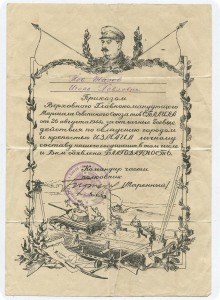 Приказом
Верховного Главнокомандующего
Маршала Советского Союза тов. СТАЛИНА
от 26 августа за отличные боевые
действия по овладению городом
и крепостью ИЗМАИЛ личному
составу нашего соединения в том числе
и Вам объявлена БЛАГОДАРНОСТЬ.
Командир части
полковник
(Маренный)